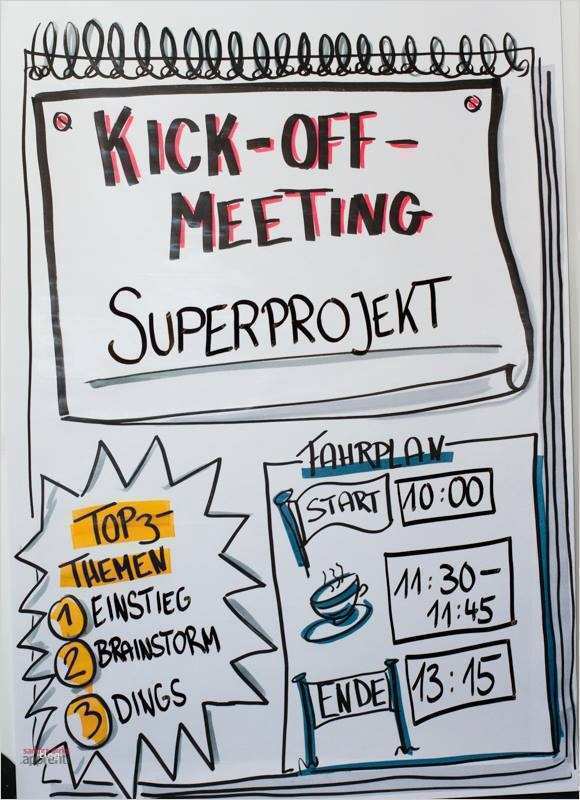 KICK-OFF-
MEETING
SUPERPROJEKT
TOP3-
THEMEN
1 EINSTIEG
2 BRAINSTORM
3 DINGS
FAHRPLAN
START 10:00
11:30-
11:45
ENDE 13:15